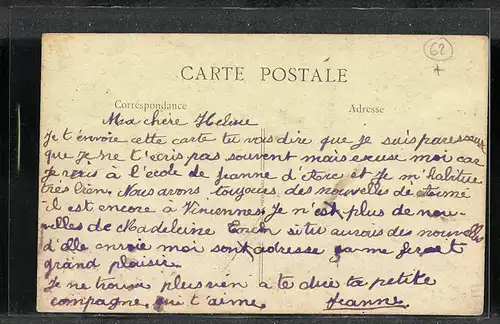 62
CARTE POSTALE
Correspondance
Adresse
Ma chère Helene
Je t'envoie cette carte tu vas dire que je suis paresseuse
que je ne t'ecris pas souvent mais excuse moi car
je vais à l'école de jeanne d'Arc et je m'habitue
très bien. Nous avons toujours des nouvelles de
il est encore à Vincennes. Je n'ai plus de nou-
velles de Madeleine si tu aurais des nouvelles
d'elle envoie moi son adresse ça me ferait
grand plaisir.
Je ne trouve plus rien a te dire ta petite
compagne qui t'aime. Jeanne